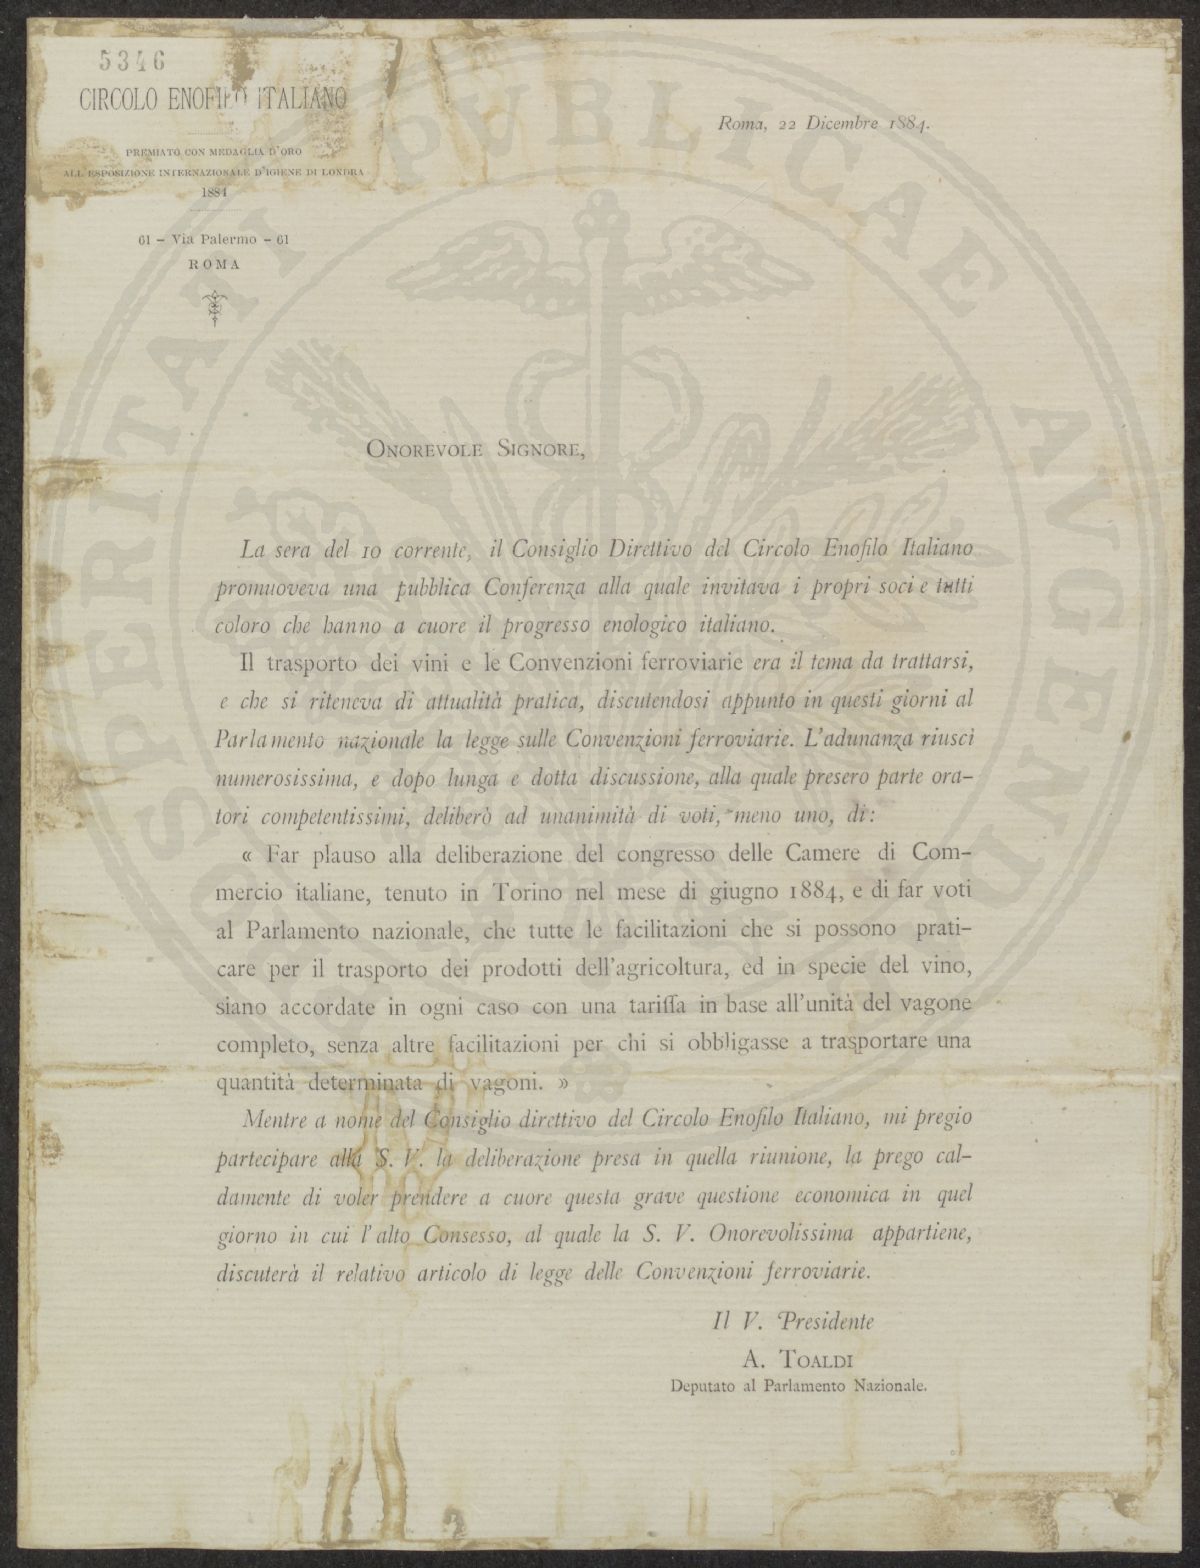 5346
CIRCOLO ENOFILO ITALIANO
PREMIATO CON MEDAGLIA D'ORO
ALL'ESPOSIZIONE INTERNAZIONALE D'IGIENE DI LONDRA
1884
61 – Via Palermo – 61
ROMA
Roma, 22 Dicembre 1884.
ONOREVOLE SIGNORE,
La sera del 10 corrente, il Consiglio Direttivo del Circolo Enofilo Italiano
promuoveva una pubblica Conferenza alla quale invitava i propri soci e tutti
coloro che hanno a cuore il progresso enologico italiano.
Il trasporto dei vini e le Convenzioni ferroviarie era il tema da trattarsi,
e che si riteneva di attualità pratica, discutendosi appunto in questi giorni al
Parlamento nazionale la legge sulle Convenzioni ferroviarie. L'adunanza riuscì
numerosissima, e dopo lunga e dotta discussione, alla quale presero parte ora-
tori competentissimi, deliberò ad unanimità di voti, meno uno, di:
« Far plauso alla deliberazione del congresso delle Camere di Com-
mercio italiane, tenuto in Torino nel mese di giugno 1884, e di far voti
al Parlamento nazionale, che tutte le facilitazioni che si possono prati-
care per il trasporto dei prodotti dell'agricoltura, ed in specie del vino,
siano accordate in ogni caso con una tariffa in base all'unità del vagone
completo, senza altre facilitazioni per chi si obbligasse a trasportare una
quantità determinata di vagoni. »
Mentre a nome del Consiglio direttivo del Circolo Enofilo Italiano, mi pregio
partecipare alla S. V. la deliberazione presa in quella riunione, la prego cal-
damente di voler prendere a cuore questa grave questione economica in quel
giorno in cui l'alto Consesso, al quale la S. V. Onorevolissima appartiene,
discuterà il relativo articolo di legge delle Convenzioni ferroviarie.
Il V. Presidente
A. TOALDI
Deputato al Parlamento Nazionale.
PROSPERITATI PVBLICAE AVGENDAE